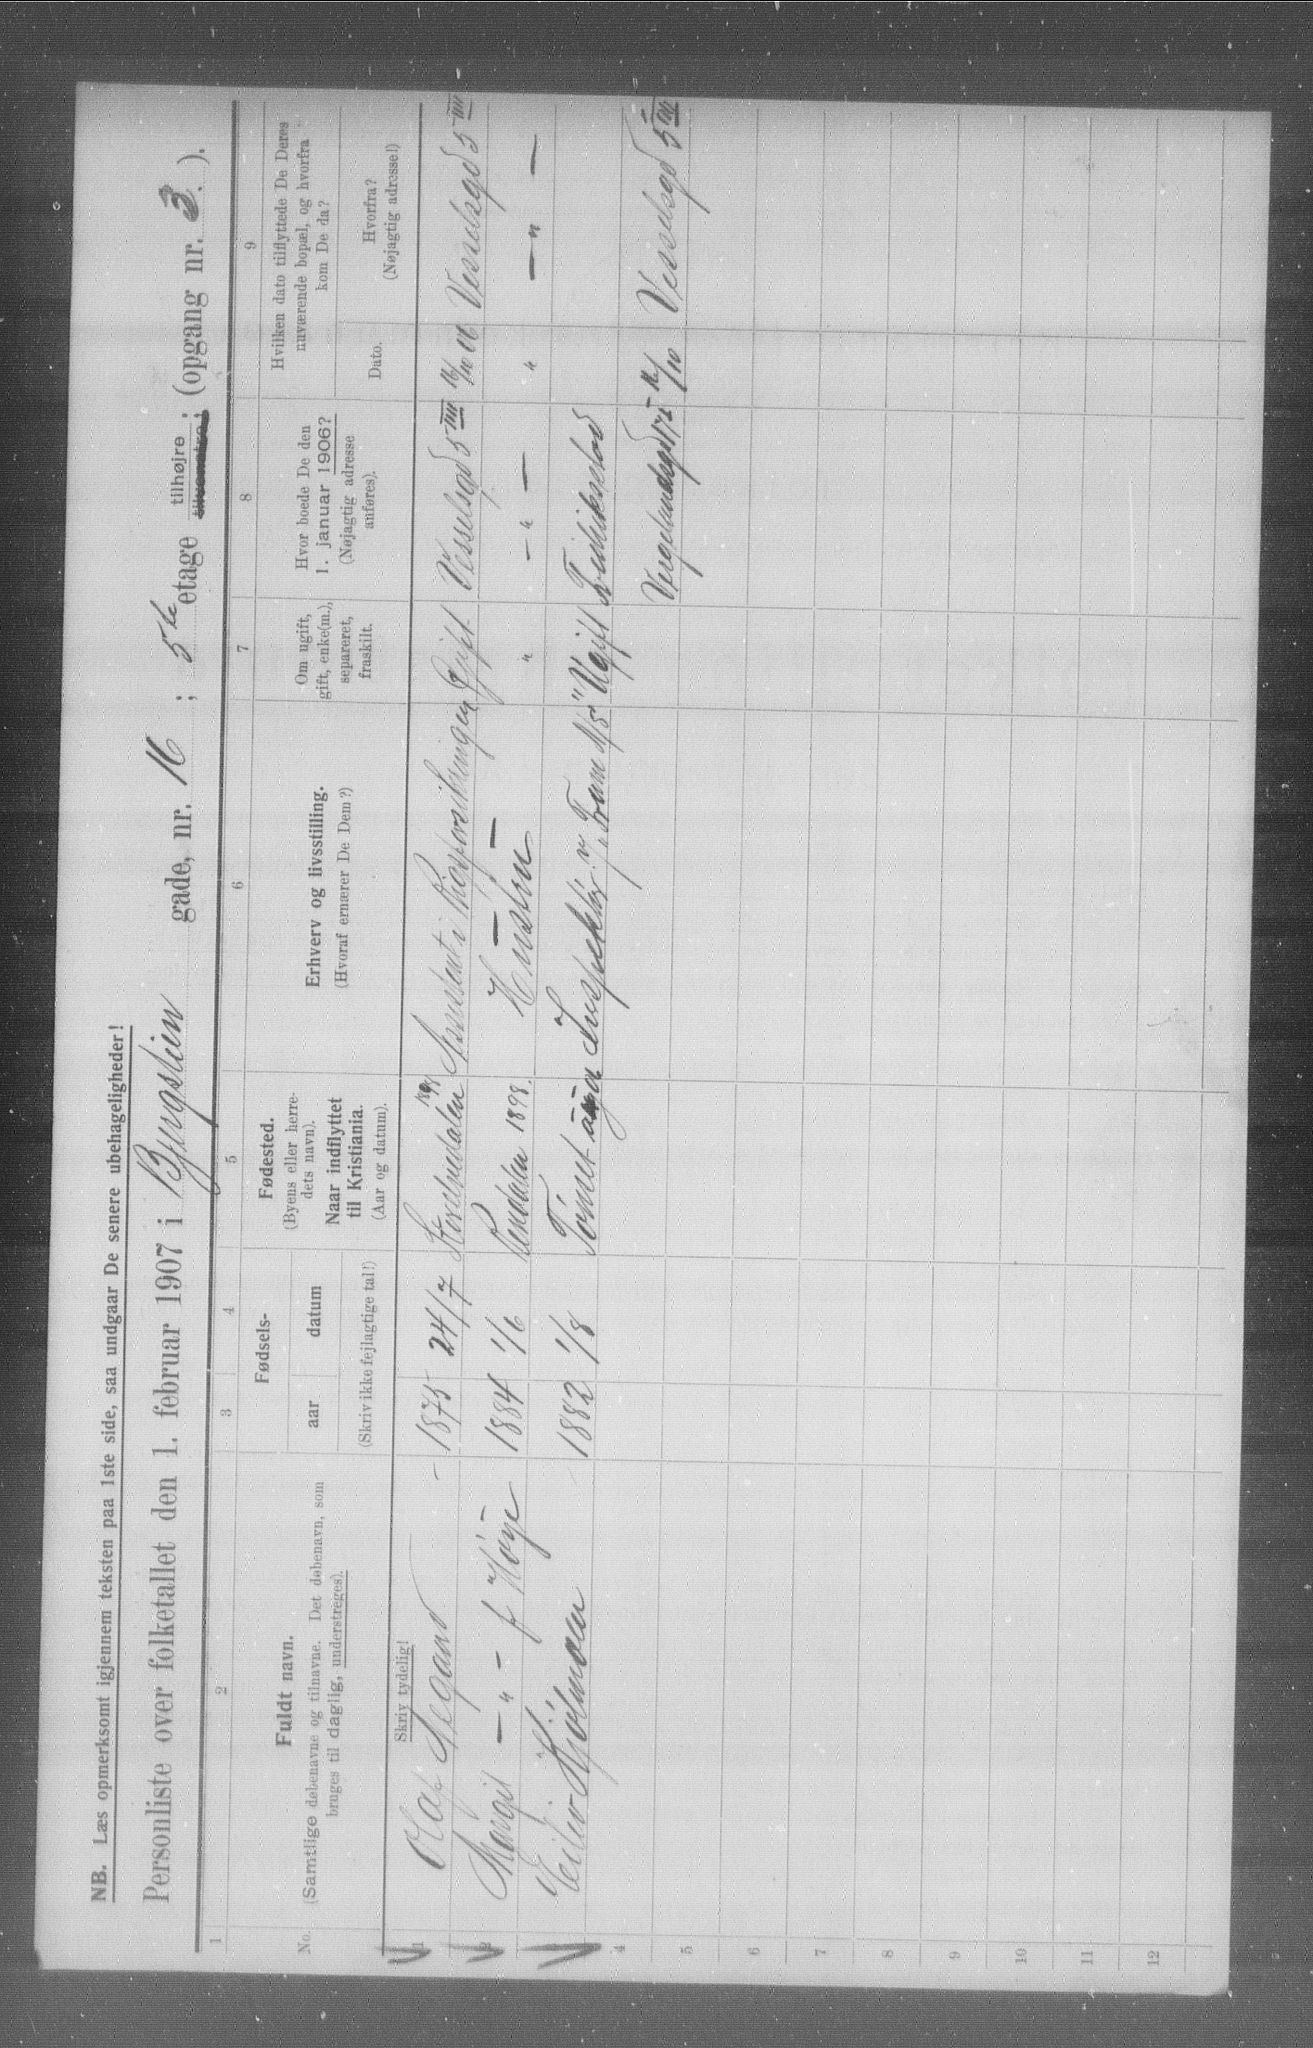 NB. Læs opmerksomt igjennem teksten paa 1ste side, saa undgaar De senere ubehageligheder!
Personliste over folketallet den 1. februar 1907 i Bjergstien gade, nr. 16 ; 5te etage tilhøjre tilvenstre ; (opgang nr. 3. ).
1 2 3 4 5 6 7 8 9
No.
Fuldt navn.
(Samtlige døbenavne og tilnavne. Det døbenavn, som
bruges til daglig, understreges).
Skriv tydelig!
Fødsels-
aar datum
(Skriv ikke fejlagtige tal!)
Fødested.
(Byens eller herre-
dets navn).
Naar indflyttet
til Kristiania.
(Aar og datum).
Erhverv og livsstilling.
(Hvoraf ernærer De Dem?)
Om ugift,
gift, enke(m.),
separeret,
fraskilt.
Hvor boede De den
1. januar 1906?
(Nøjagtig adresse
anføres).
Hvilken dato tilflyttede De Deres
nuværende bopæl, og hvorfra
kom De da?
Dato.
Hvorfra?
(Nøjagtig adresse!)
1 Olaf 1875 24/7 Assistent i Rigsforsikringen Gift Vesselsgd 5 IIII Vesselsgd 5 IIII
2 Margit — " — f. Høye 1884 1/6 Rendalen 1898. Hustru " — " — " — " —
3 Kjølmoen 1882 1/8 Tönset Inspektør v. Ugift Fredrikstad
Vesselsgd 5
4
5
6
7
8
9
10
11
12